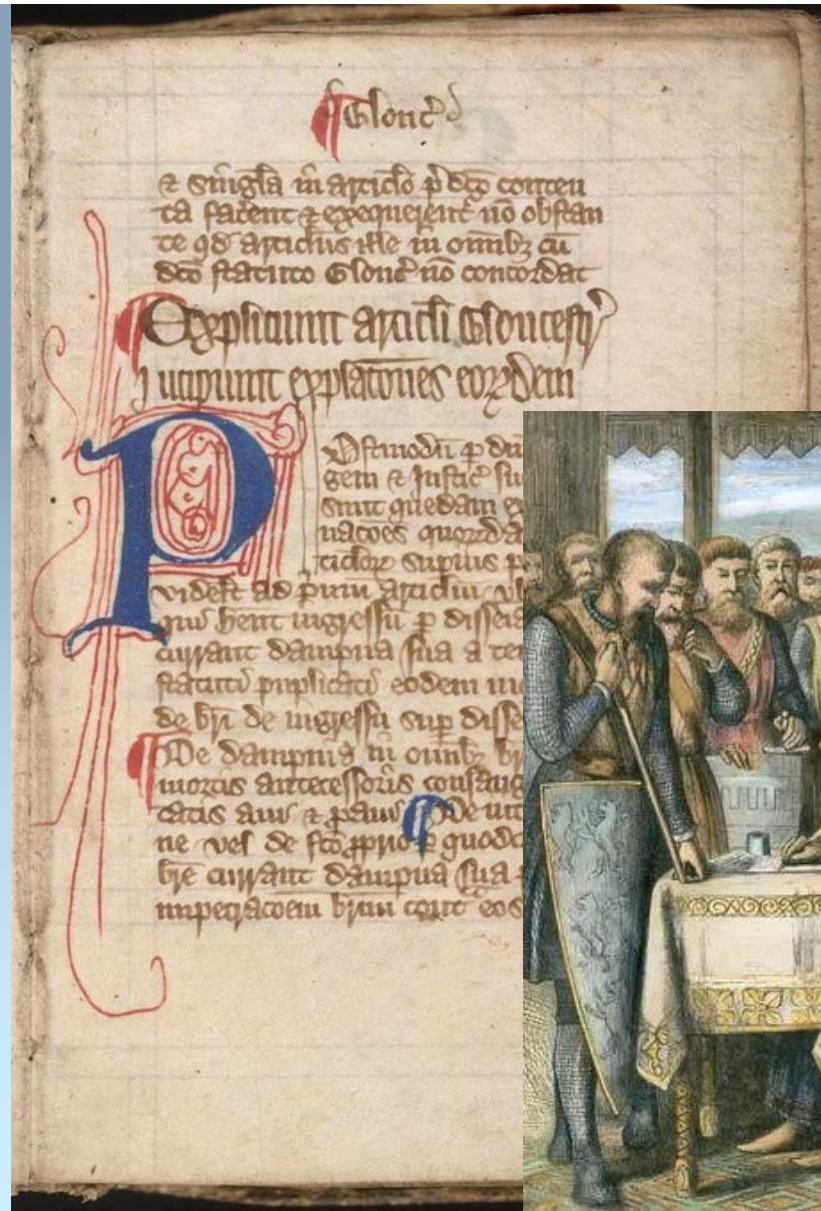 Glouc̄
⁊ singl̄a in articlo p̄dc̄o conten
ta facient ⁊ exequent̄ nō obstan
te qd̄ articlus ille in omnibȝ cū
dc̄o statuto Glouc̄ nō concordat
Expliciunt articl̄i Gloucestr̄
Incipiunt expl̄atōnes eorȝdem
Postmodū p dn̄
gem ⁊ Justic̄ su
sunt quedam ex
nac̄oes quorūda
ticlorȝ supius p
videlt̄ ad p̄mū articlm̄ vl
qui hent̄ ingressū p disseis
currant dampna sua a te
statuti puplicati eodem m
de br̄i de ingressu sup disse
De dampnis in omībȝ br
mortis antecessoris consang
tatis aui ⁊ p̄aui De ute
ne vel de fc̄o ꝓprio quodc
br̄e currant dampna sua
impetrac̄oem br̄ium eos